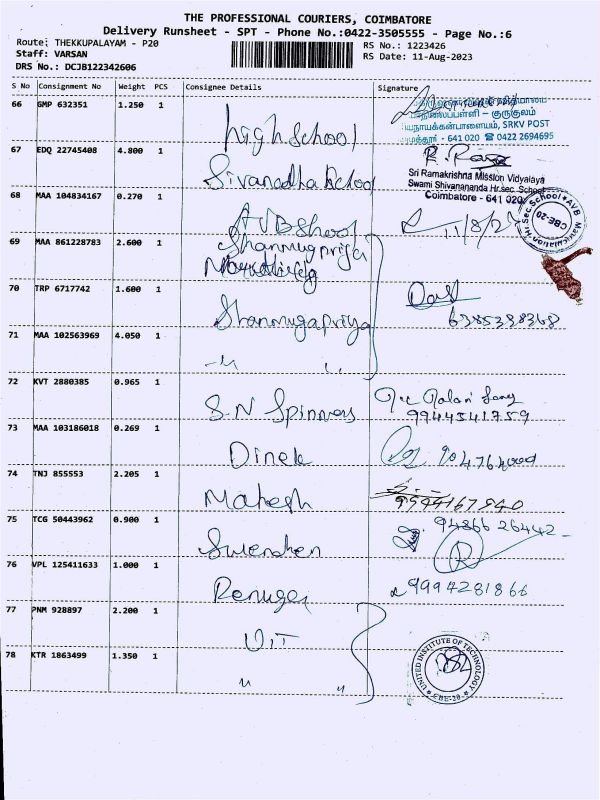 THE PROFESSIONAL COURIERS, COIMBATORE
Delivery Runsheet - SPT - Phone No.:0422-3505555 - Page No.:6
Route: THEKKUPALAYAM - P20
RS No.: 1223426
Staff: VARSAN
RS Date: 11-Aug-2023
DRS No.: DCJB122342606
S No Consignment No Weight PCS Consignee Details Signature
66 GMP 632351 1.250 1
High School
குருகுலம்
641 020 ☎ 0422 2694695
SRKV POST
67 EDQ 22745408 4.800 1
Sivanandha School
Sri Ramakrishna Mission Vidyalaya
Swami Shivanananda Hr.sec. School
Coimbatore - 641 020
68 MAA 104834167 0.270 1
AVB School
11/8/2
Hr.Sec.School ★ AVB Matriculation
CBE-20
69 MAA 861228783 2.600 1
Shanmugpriya
70 TRP 6717742 1.600 1
Shanmugapriya
6385398368
71 MAA 102563969 4.050 1
-〃 〃
72 KVT 2880385 0.965 1
S.N Spinners
9944541759
73 MAA 103186018 0.269 1
Dinek
74 TNJ 855553 2.205 1
Mahesh
9994167940
75 TCG 50443962 0.900 1
Surendhen
94866 26442
76 VPL 125411633 1.000 1
Renuga
9994281866
77 PNM 928897 2.200 1
UIT
78 KTR 1863499 1.350 1
〃 〃
UNITED INSTITUTE OF TECHNOLOGY
CBE-20